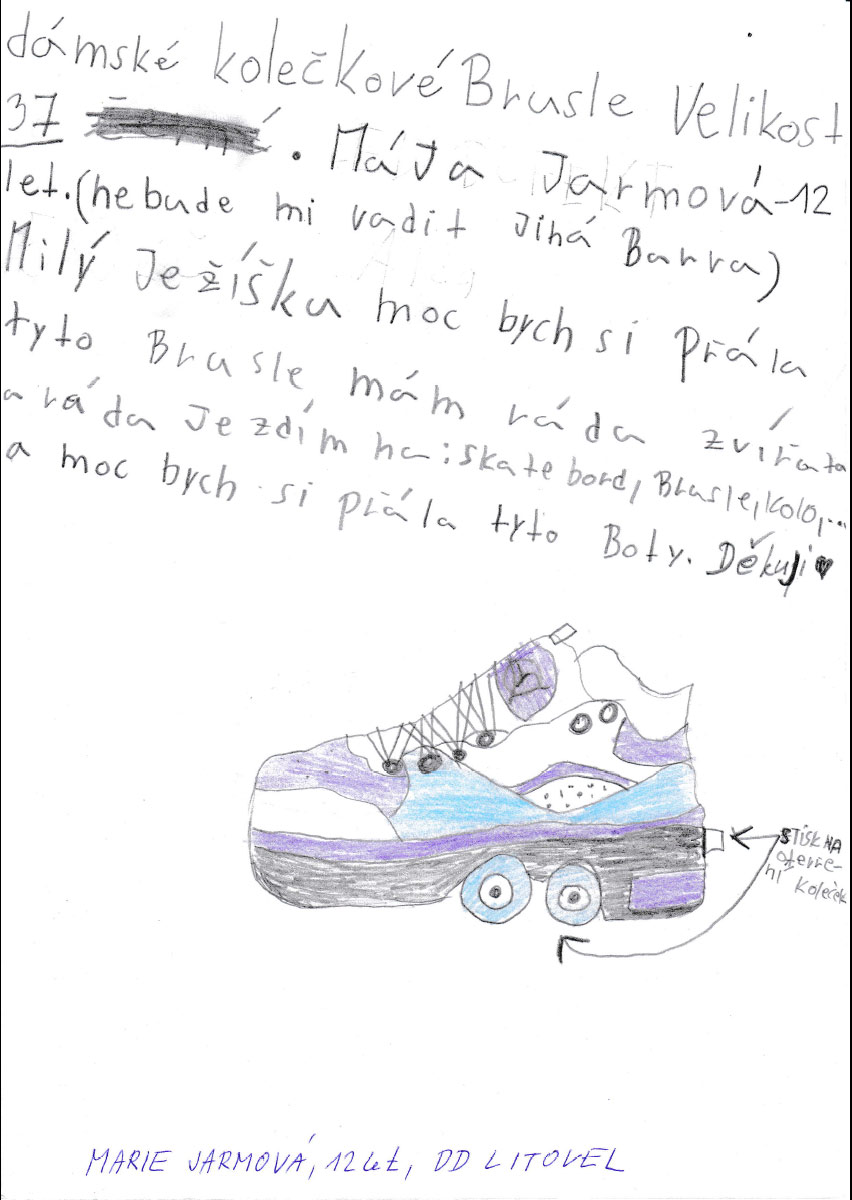 dámské kolečkové Brusle Velikost
37 . Mája Jarmová-12
let. (nebude mi vadit jiná Barva)
Milý Ježíšku moc bych si přála
tyto Brusle mám ráda zvířata
a ráda jezdím na: skate bord, Brusle, kolo,...
a moc bych si přála tyto Boty. Děkuji ♥
STISK NA
otevře-
ní koleček
MARIE JARMOVÁ, 12 let, DD LITOVEL